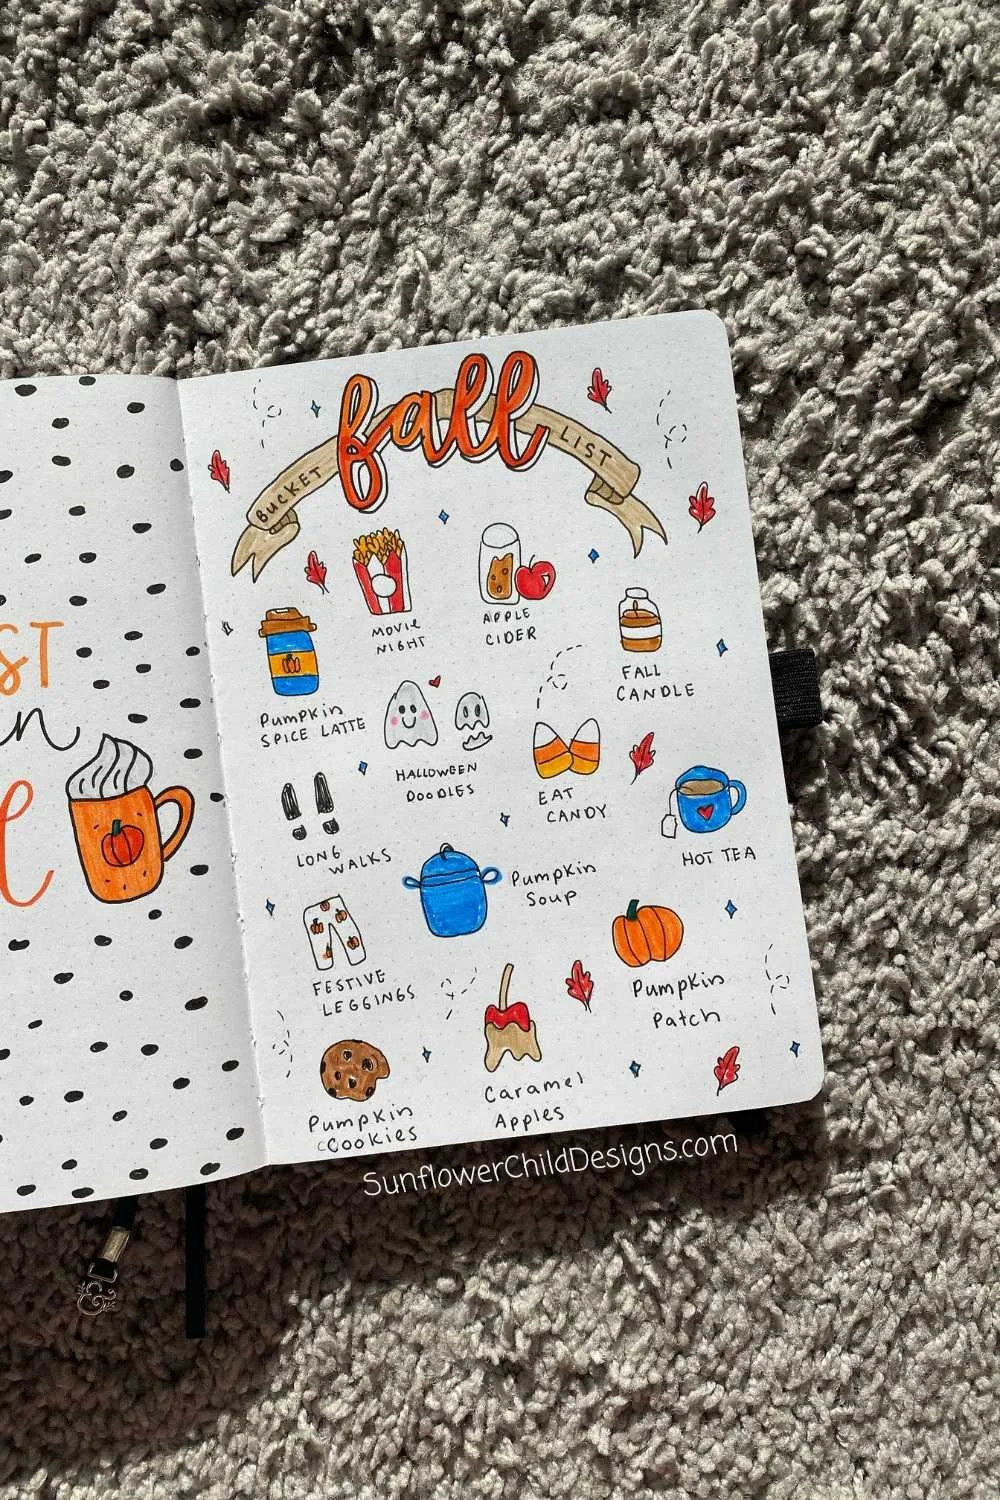 fall
BUCKET LIST
MOVIE
NIGHT
APPLE
CIDER
FALL
CANDLE
Pumpkin
SPICE LATTE
HALLOWEEN
DOODLES
EAT
CANDY
HOT TEA
LONG
WALKS
Pumpkin
Soup
FESTIVE
LEGGINGS
Pumpkin
Patch
Caramel
Apples
Pumpkin
Cookies
SunflowerChildDesigns.com